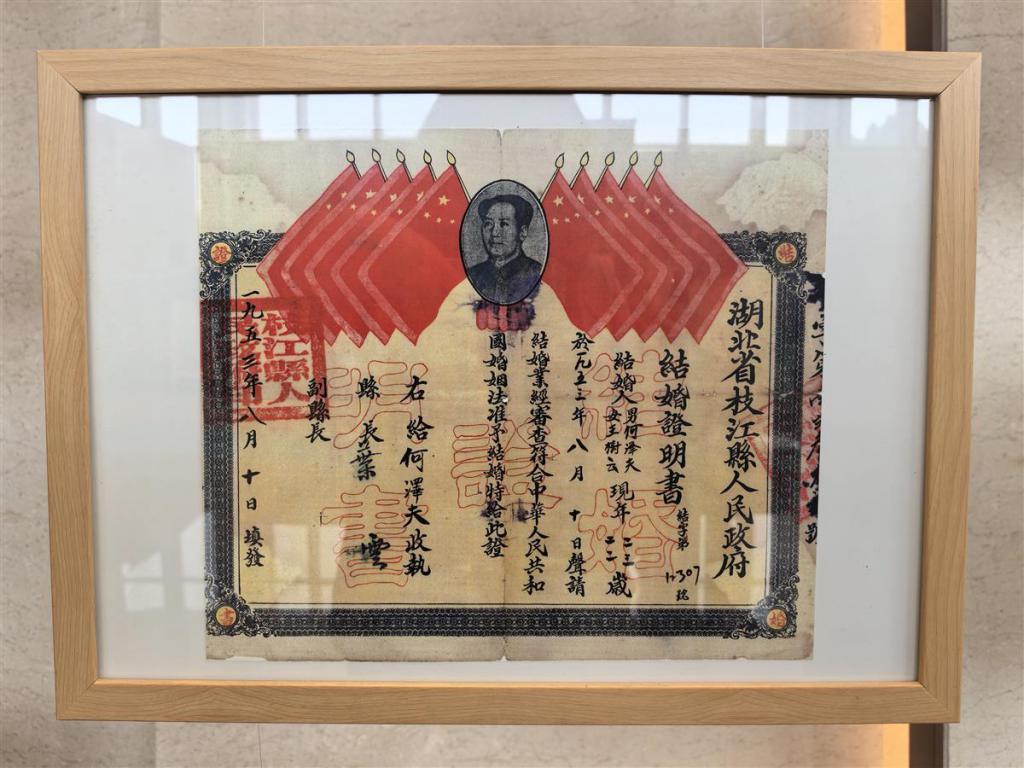 湖北省枝江縣人民政府
結婚證明書
結字第
12307
號
結婚人 男何泽夫 現年 二三 歲
女王衛云 二二
於一九五三年 八月 十日聲請
結婚業經審查符合中華人民共和
國婚姻法准予結婚特給此證
右給何澤夫收執
縣長葉雲
副縣長
一九五三年八月十日填發
結
婚
證
書
結婚證明書
枝江縣人